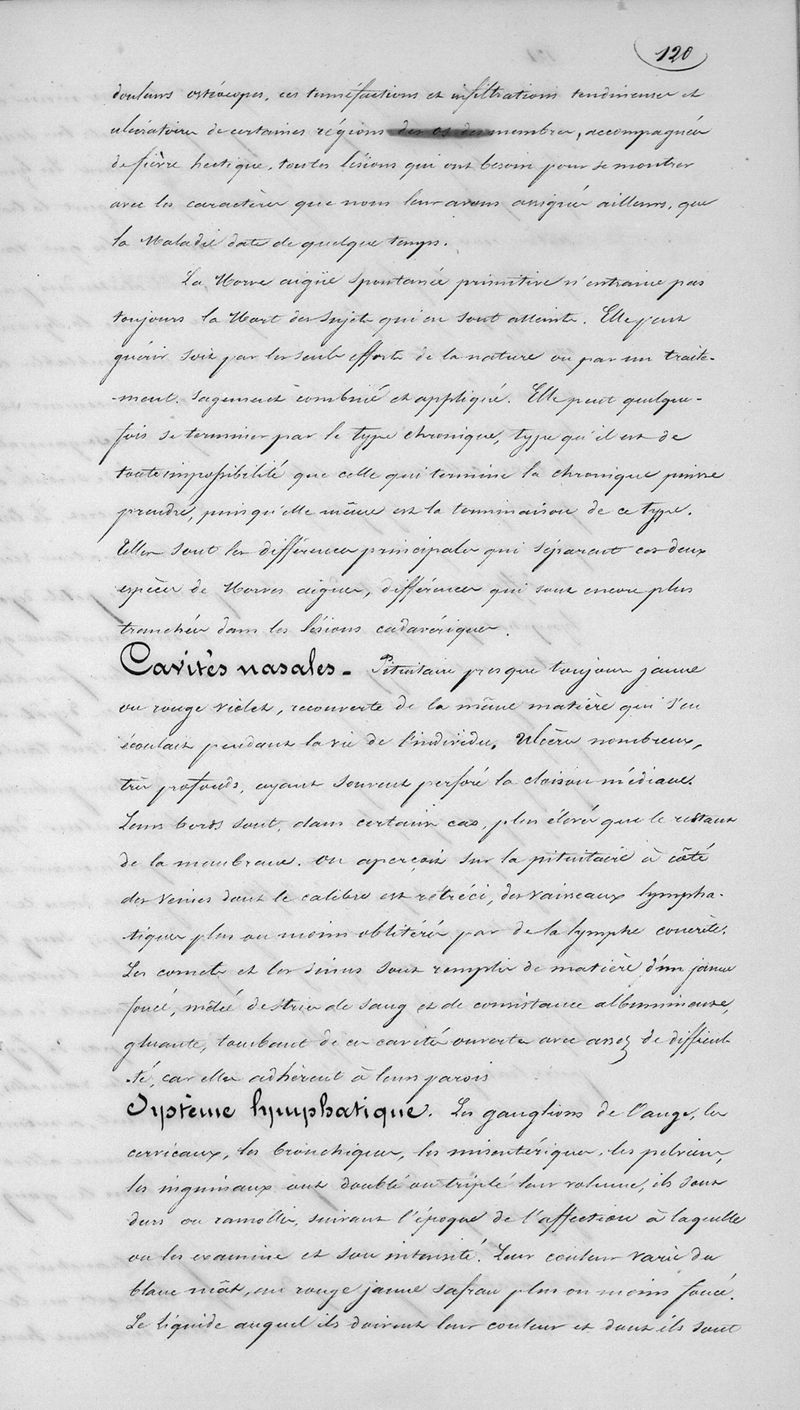 120
douleurs ostéocopes, ces tuméfactions et infiltrations tendineuses et
ulcératoires de certaines régions des os des membres, accompagnées
de fièvre hectique, toutes lésions qui ont besoin pour se montrer
avec les caractères que nous leur avons assignés ailleurs, que
la Maladie date de quelque temps.
La Morve aigüe spontanée primitive n'entraine pas
toujours la Mort des sujets qui en sont atteints. Elle peut
guérir soit par les seuls efforts de la nature ou par un traite-
-ment sagement combiné et appliqué. Elle peut quelque-
fois se terminer par le type chronique, type qu'il est de
toute impossibilité que celle qui termine la chronique puisse
prendre, puisqu'elle même est la terminaison de ce type.
Telles sont les différences principales qui séparent ces deux
espèces de Morves aigues, différences qui sont encore plus
tranchées dans les lésions cadavériques.
Cavités nasales - Pituitaire presque toujours jaune
ou rouge violet, recouverte de la même matière qui s'en
écoulait pendant la vie de l'individu. Ulcères nombreux,
très profonds, ayant souvent perforé la cloison médiane.
Leurs bords sont, dans certains cas, plus élevés que le restant
de la membrane. On aperçoit sur la pituitaire à côté
des veines dont le calibre est rétréci, des vaisseaux lympha-
-tiques plus ou moins oblitérés par de la lymphe concrète.
Les cornets et les sinus sont remplis de matière d'un jaune
foncé, mêlée de stries de sang et de consistance albumineuse,
gluante, tombant de ces cavités ouvertes avec assez de difficul-
-té, car elles adhèrent à leurs parois
Système lymphatique. Les ganglions de l'auge, les
cervicaux, les bronchiques, les mésentériques, les pelviens,
les inguinaux ont doublé ou triplé leur volume, ils sont
durs ou ramollis, suivant l'époque de l'affection à laquelle
on les examine et son intensité. Leur couleur varie du
blanc mât, au rouge jaune safran plus ou moins foncé.
Le liquide auquel ils doivent leur couleur et dont ils sont